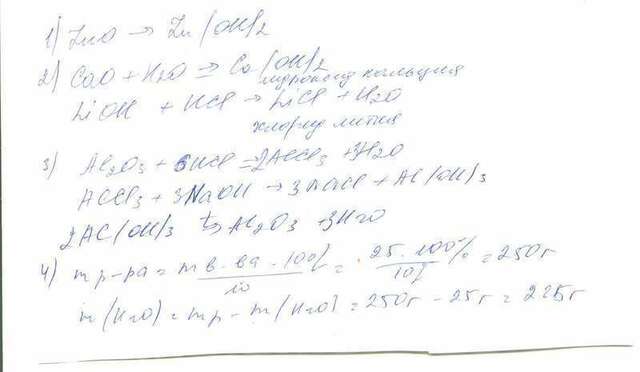 1) ZnO → Zn(OH)2
2) CaO + H2O = Ca(OH)2
гидроксид кальция
LiOH + HCl → LiCl + H2O
хлорид лития
3) Al2O3 + 6HCl = 2AlCl3 + 3H2O
AlCl3 + 3NaOH → 3NaCl + Al(OH)3
2Al(OH)3 t→ Al2O3 + 3H2O
4) m р-ра = m в-ва · 100% / 10 = 25 · 100% / 10% = 250г
m(H2O) = mр - m(H2O) = 250г - 25г = 225г